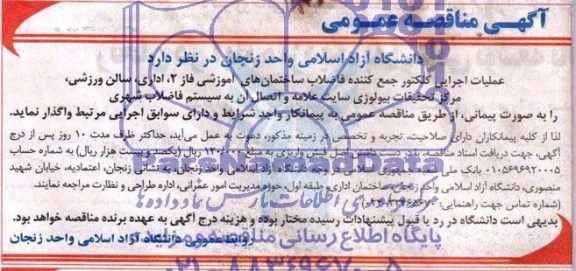 آگهی مناقصه عمومی
دانشگاه آزاد اسلامی واحد زنجان در نظر دارد
عملیات اجرایی کلکتور جمع کننده فاضلاب ساختمان‌های آموزشی فاز ۲، اداری، سالن ورزشی،
مرکز تحقیقات بیولوژی سایت علامه و اتصال آن به سیستم فاضلاب شهری
را به صورت پیمانی، از طریق مناقصه عمومی به پیمانکار واجد شرایط و دارای سوابق اجرایی مرتبط واگذار نماید.
لذا از کلیه پیمانکاران دارای صلاحیت، تجربه و تخصص در زمینه مذکور، دعوت به عمل می‌آید، حداکثر ظرف مدت ۱۰ روز پس از درج
آگهی، جهت دریافت اسناد مناقصه، با در دست داشتن اصل فیش واریزی به مبلغ ریال (یکصد و بیست هزار ریال) به شماره حساب
۰۱۰۵۶۹۶۹۲۰۰۵ بانک ملی دانشگاه آزاد اسلامی واحد زنجان، به نشانی زنجان، اعتمادیه، خیابان شهید
منصوری، دانشگاه آزاد اسلامی واحد زنجان، ساختمان اداری، طبقه اول، حوزه مدیریت امور عمرانی، اداره طراحی و نظارت مراجعه نمایند.
(شماره تماس جهت راهنمایی:
بدیهی است دانشگاه در رد یا قبول پیشنهادات رسیده مختار بوده و هزینه درج آگهی به عهده برنده مناقصه خواهد بود.
روابط عمومی دانشگاه آزاد اسلامی واحد زنجان
ParsNamadData
پایگاه اطلاع رسانی مناقصه و مزایده
۰۲۱-۸۸۳۴۹۶۷۰-۵